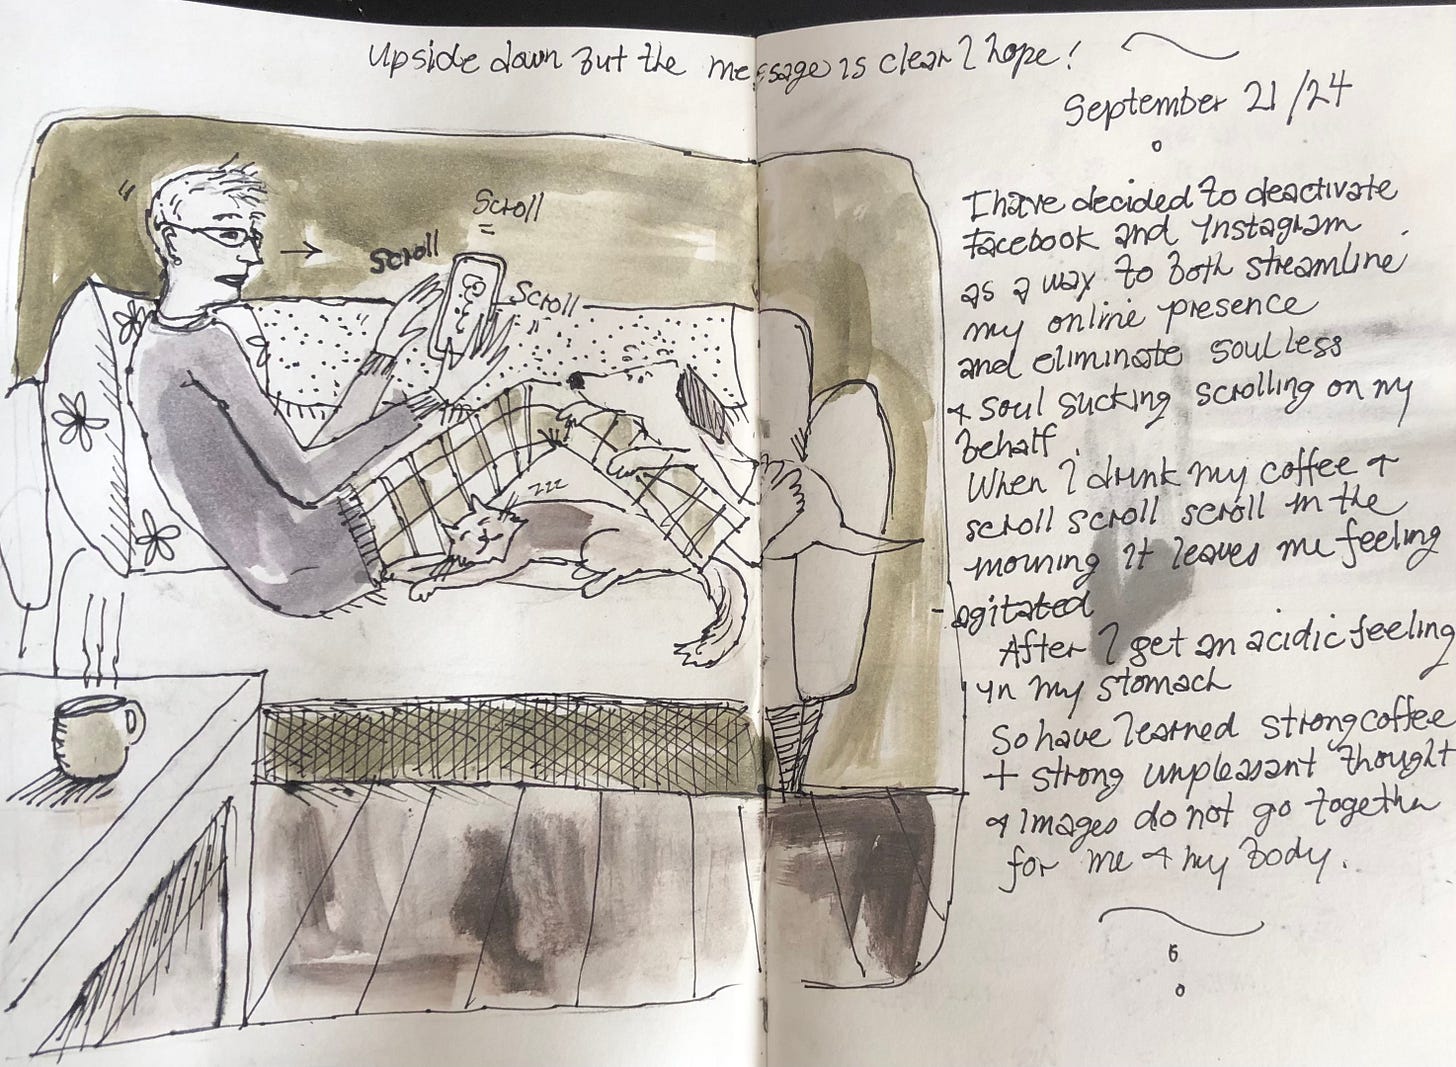 Upside down But the message is clear I hope!
September 21/24
Scroll
Scroll
Scroll
zzz
I have decided to deactivate
Facebook and Instagram
as a way to both streamline
my online presence
and eliminate soulless
+ soul sucking scrolling on my
behalf.
When I drink my coffee +
scroll scroll scroll in the
morning it leaves me feeling
agitated
After I get an acidic feeling
in my stomach
So have learned strong coffee
+ strong unpleasant thought
+ images do not go together
for me + my body.